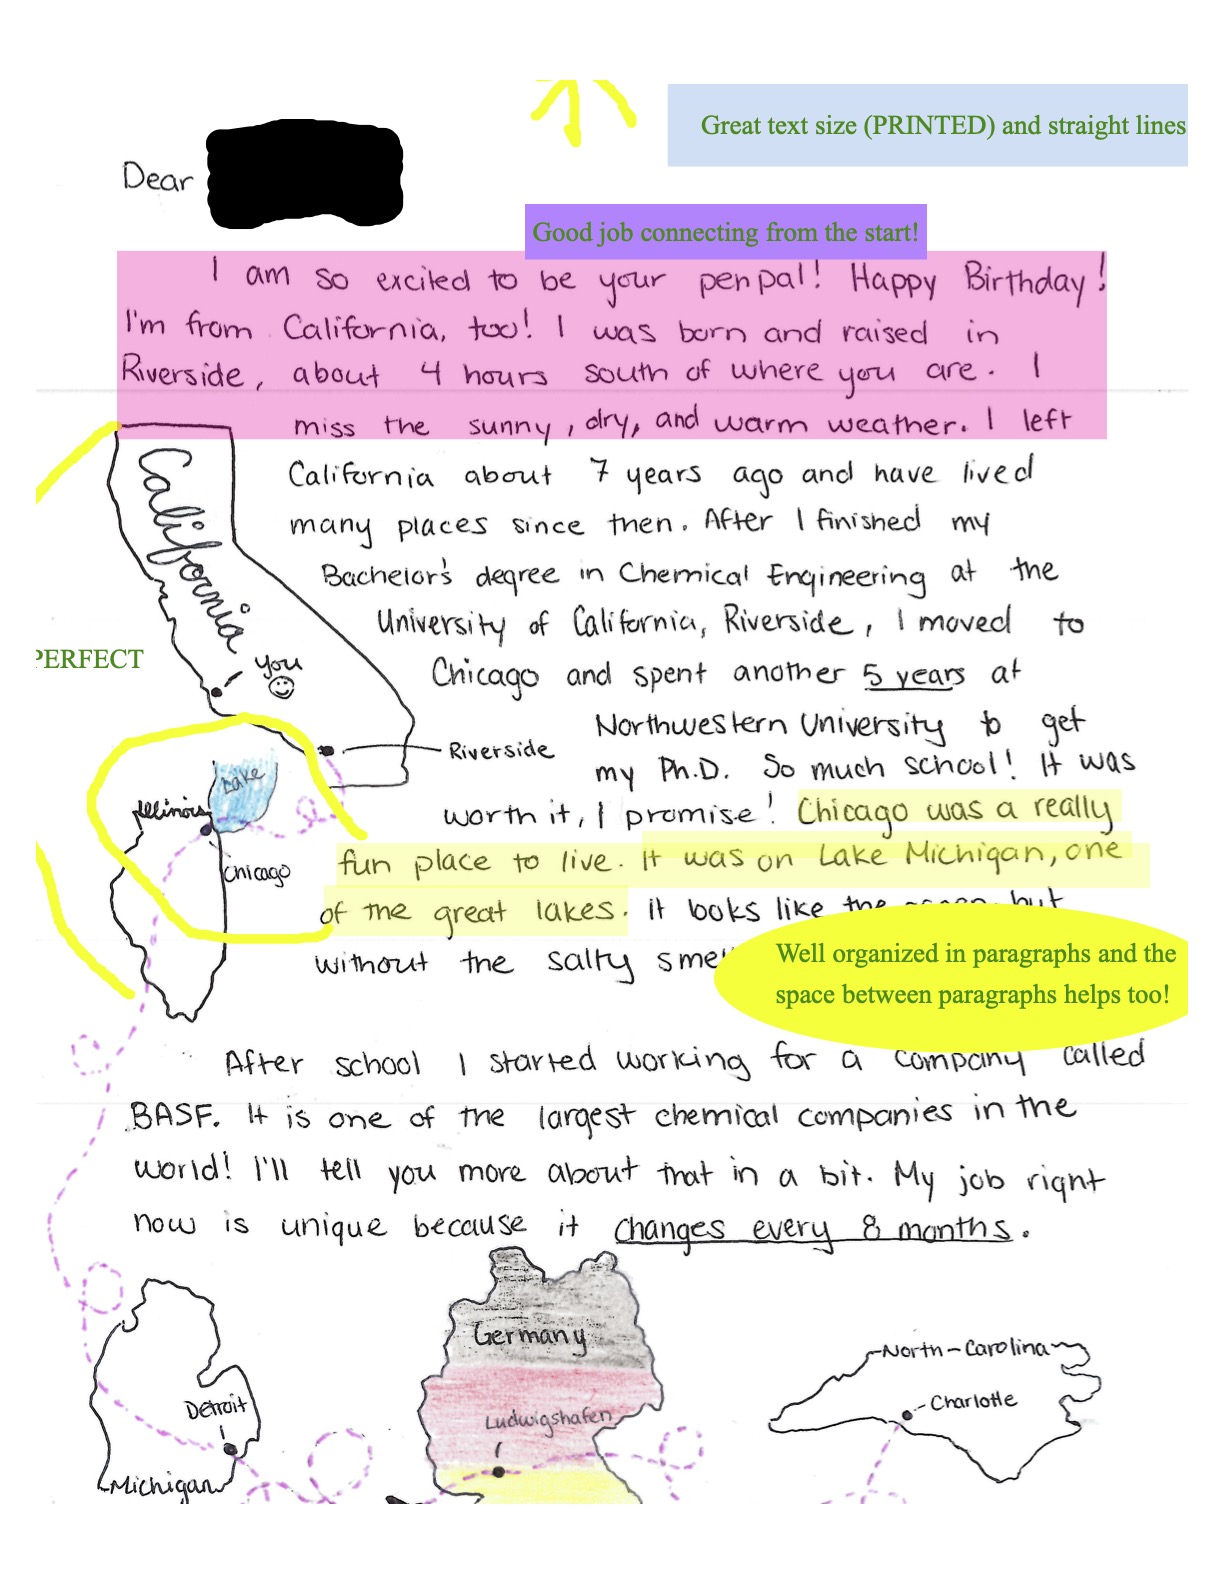 Great text size (PRINTED) and straight lines
Dear
Good job connecting from the start!
I am so excited to be your penpal! Happy Birthday!
I'm from California, too! I was born and raised in
Riverside, about 4 hours south of where you are. I
miss the sunny, dry, and warm weather. I left
California about 7 years ago and have lived
many places since then. After I finished my
Bachelor's degree in Chemical Engineering at the
University of California, Riverside, I moved to
Chicago and spent another 5 years at
Northwestern University to get
my Ph.D. So much school! It was
worth it, I promise! Chicago was a really
fun place to live. It was on Lake Michigan, one
of the great lakes. It looks like the but
without the salty
California
PERFECT
you
Riverside
Lake
Illinois
Chicago
Well organized in paragraphs and the
space between paragraphs helps too!
After school I started working for a company called
BASF. It is one of the largest chemical companies in the
world! I'll tell you more about that in a bit. My job right
now is unique because it changes every 8 months.
Detroit
Michigan
Germany
Ludwigshafen
North-Carolina
Charlotte